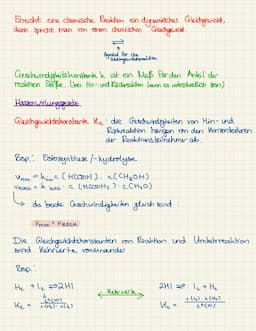 Erreicht eine chemische Reaktion ein dynamisches Gleichgewicht,
dann spricht man von einem chemischen Gleichgewicht.
⇌
Symbol für die
Gleichgewichtsreaktion
Geschwindigkeitskonstante k ist ein Maß für den Anteil der
reaktiven Stöße. (Von Hin- und Rückreaktion kann es unterschiedlich sein)
Massenwirkungsgesetz
Gleichgewichtskonstante Kc: die Geschwindigkeiten von Hin- und
Rückreaktion hängen von den Konzentrationen
der Reaktionsteilnehmer ab.
Bsp.: Estersynthese /-hydrolyse
v = k · c(HCOOH) · c(CH₃OH)
v = k · c(HCOOCH₃) · c(H₂O)
↳ da beide Geschwindigkeiten gleich sind:
v = v
Die Gleichgewichtskonstanten von Reaktion und Umkehrreaktion
sind Kehrwerte voneinander
Bsp.:
H₂ + I₂ ⇌ 2HI 2HI ⇌ I₂ + H₂
Kehrwerte
Kc = c²(HI) / c(H₂)·c(I₂) Kc = c(H₂)·c(I₂) / c²(HI)